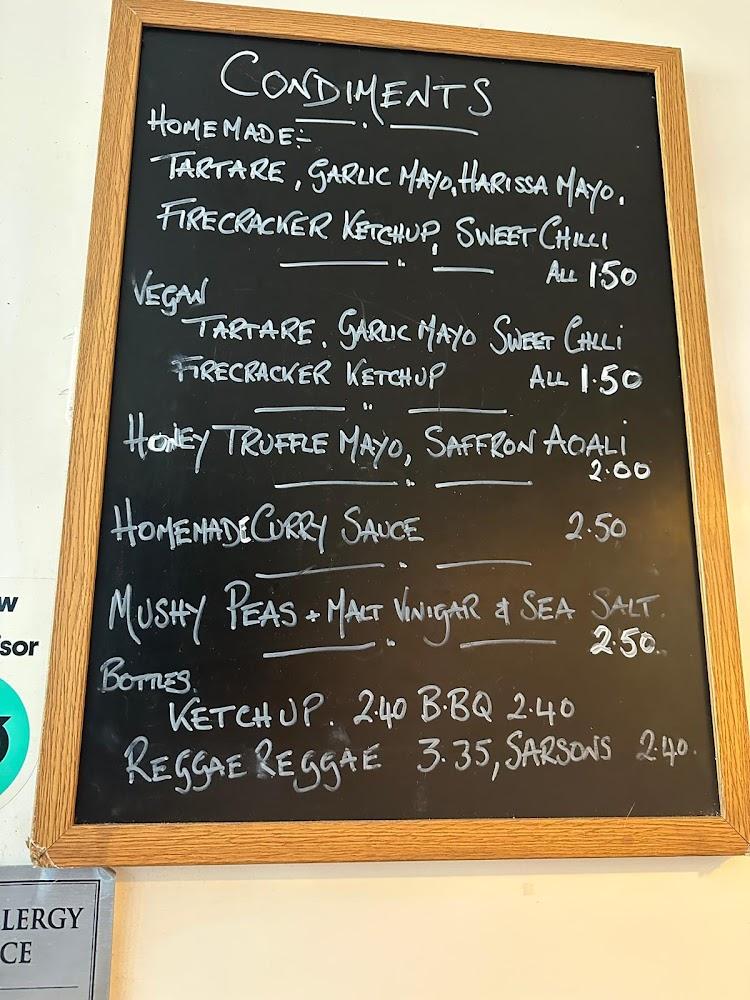 CONDIMENTS
HOMEMADE:-
TARTARE, GARLIC MAYO, HARISSA MAYO.
FIRECRACKER KETCHUP, SWEET CHILLI
ALL 1.50
VEGAN
TARTARE, GARLIC MAYO SWEET CHLLI
FIRECRACKER KETCHUP ALL 1.50
HONEY TRUFFLE MAYO, SAFFRON AOALI
2.00
HOMEMADE CURRY SAUCE 2.50
MUSHY PEAS + MALT VINIGAR & SEA SALT
2.50.
BOTTLES.
KETCHUP. 2.40 B.BQ 2.40
REGGAE REGGAE 3.35, SARSONS 2.40.
W
sor
LERGY
CE